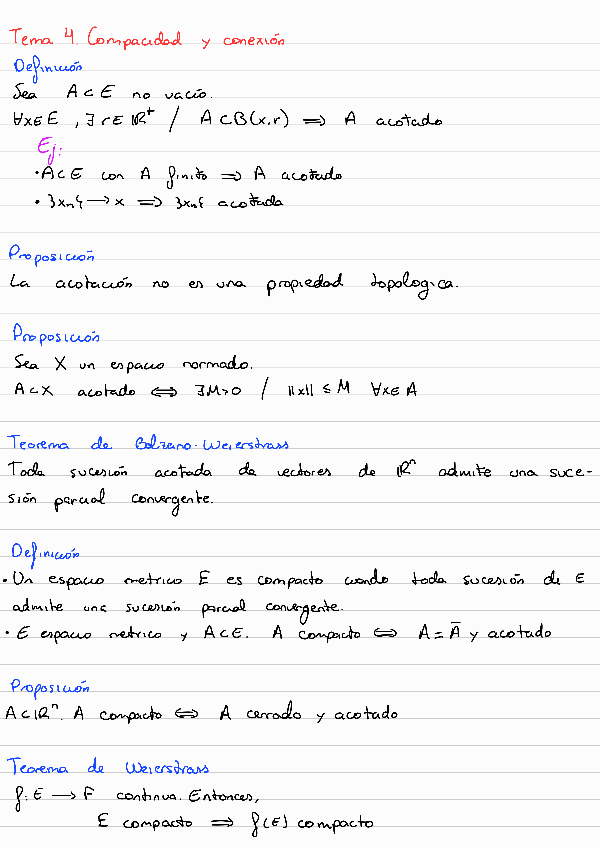 Tema 4. Compacidad y conexión
Definición
Sea A⊂E no vacío.
∀x∈E , ∃ r∈ℝ⁺ / A⊂B(x,r) ⇒ A acotado
Ej:
• A⊂E con A finito ⇒ A acotado
• }xₙ{ → x ⇒ }xₙ{ acotada
Proposición
La acotación no es una propiedad topologica.
Proposición
Sea X un espacio normado.
A⊂X acotado ⇔ ∃M>0 / ||x|| ≤ M ∀x∈A
Teorema de Bolzano-Weierstrass
Toda sucesión acotada de vectores de ℝⁿ admite una suce-
sión parcial convergente.
Definición
• Un espacio metrico E es compacto cuando toda sucesión de E
admite una sucesión parcial convergente.
• E espacio metrico y A⊂E. A compacto ⇔ A = Ā y acotado
Proposición
A⊂ℝⁿ. A compacto ⇔ A cerrado y acotado
Teorema de Weierstrass
f: E → F continua. Entonces,
E compacto ⇒ f(E) compacto